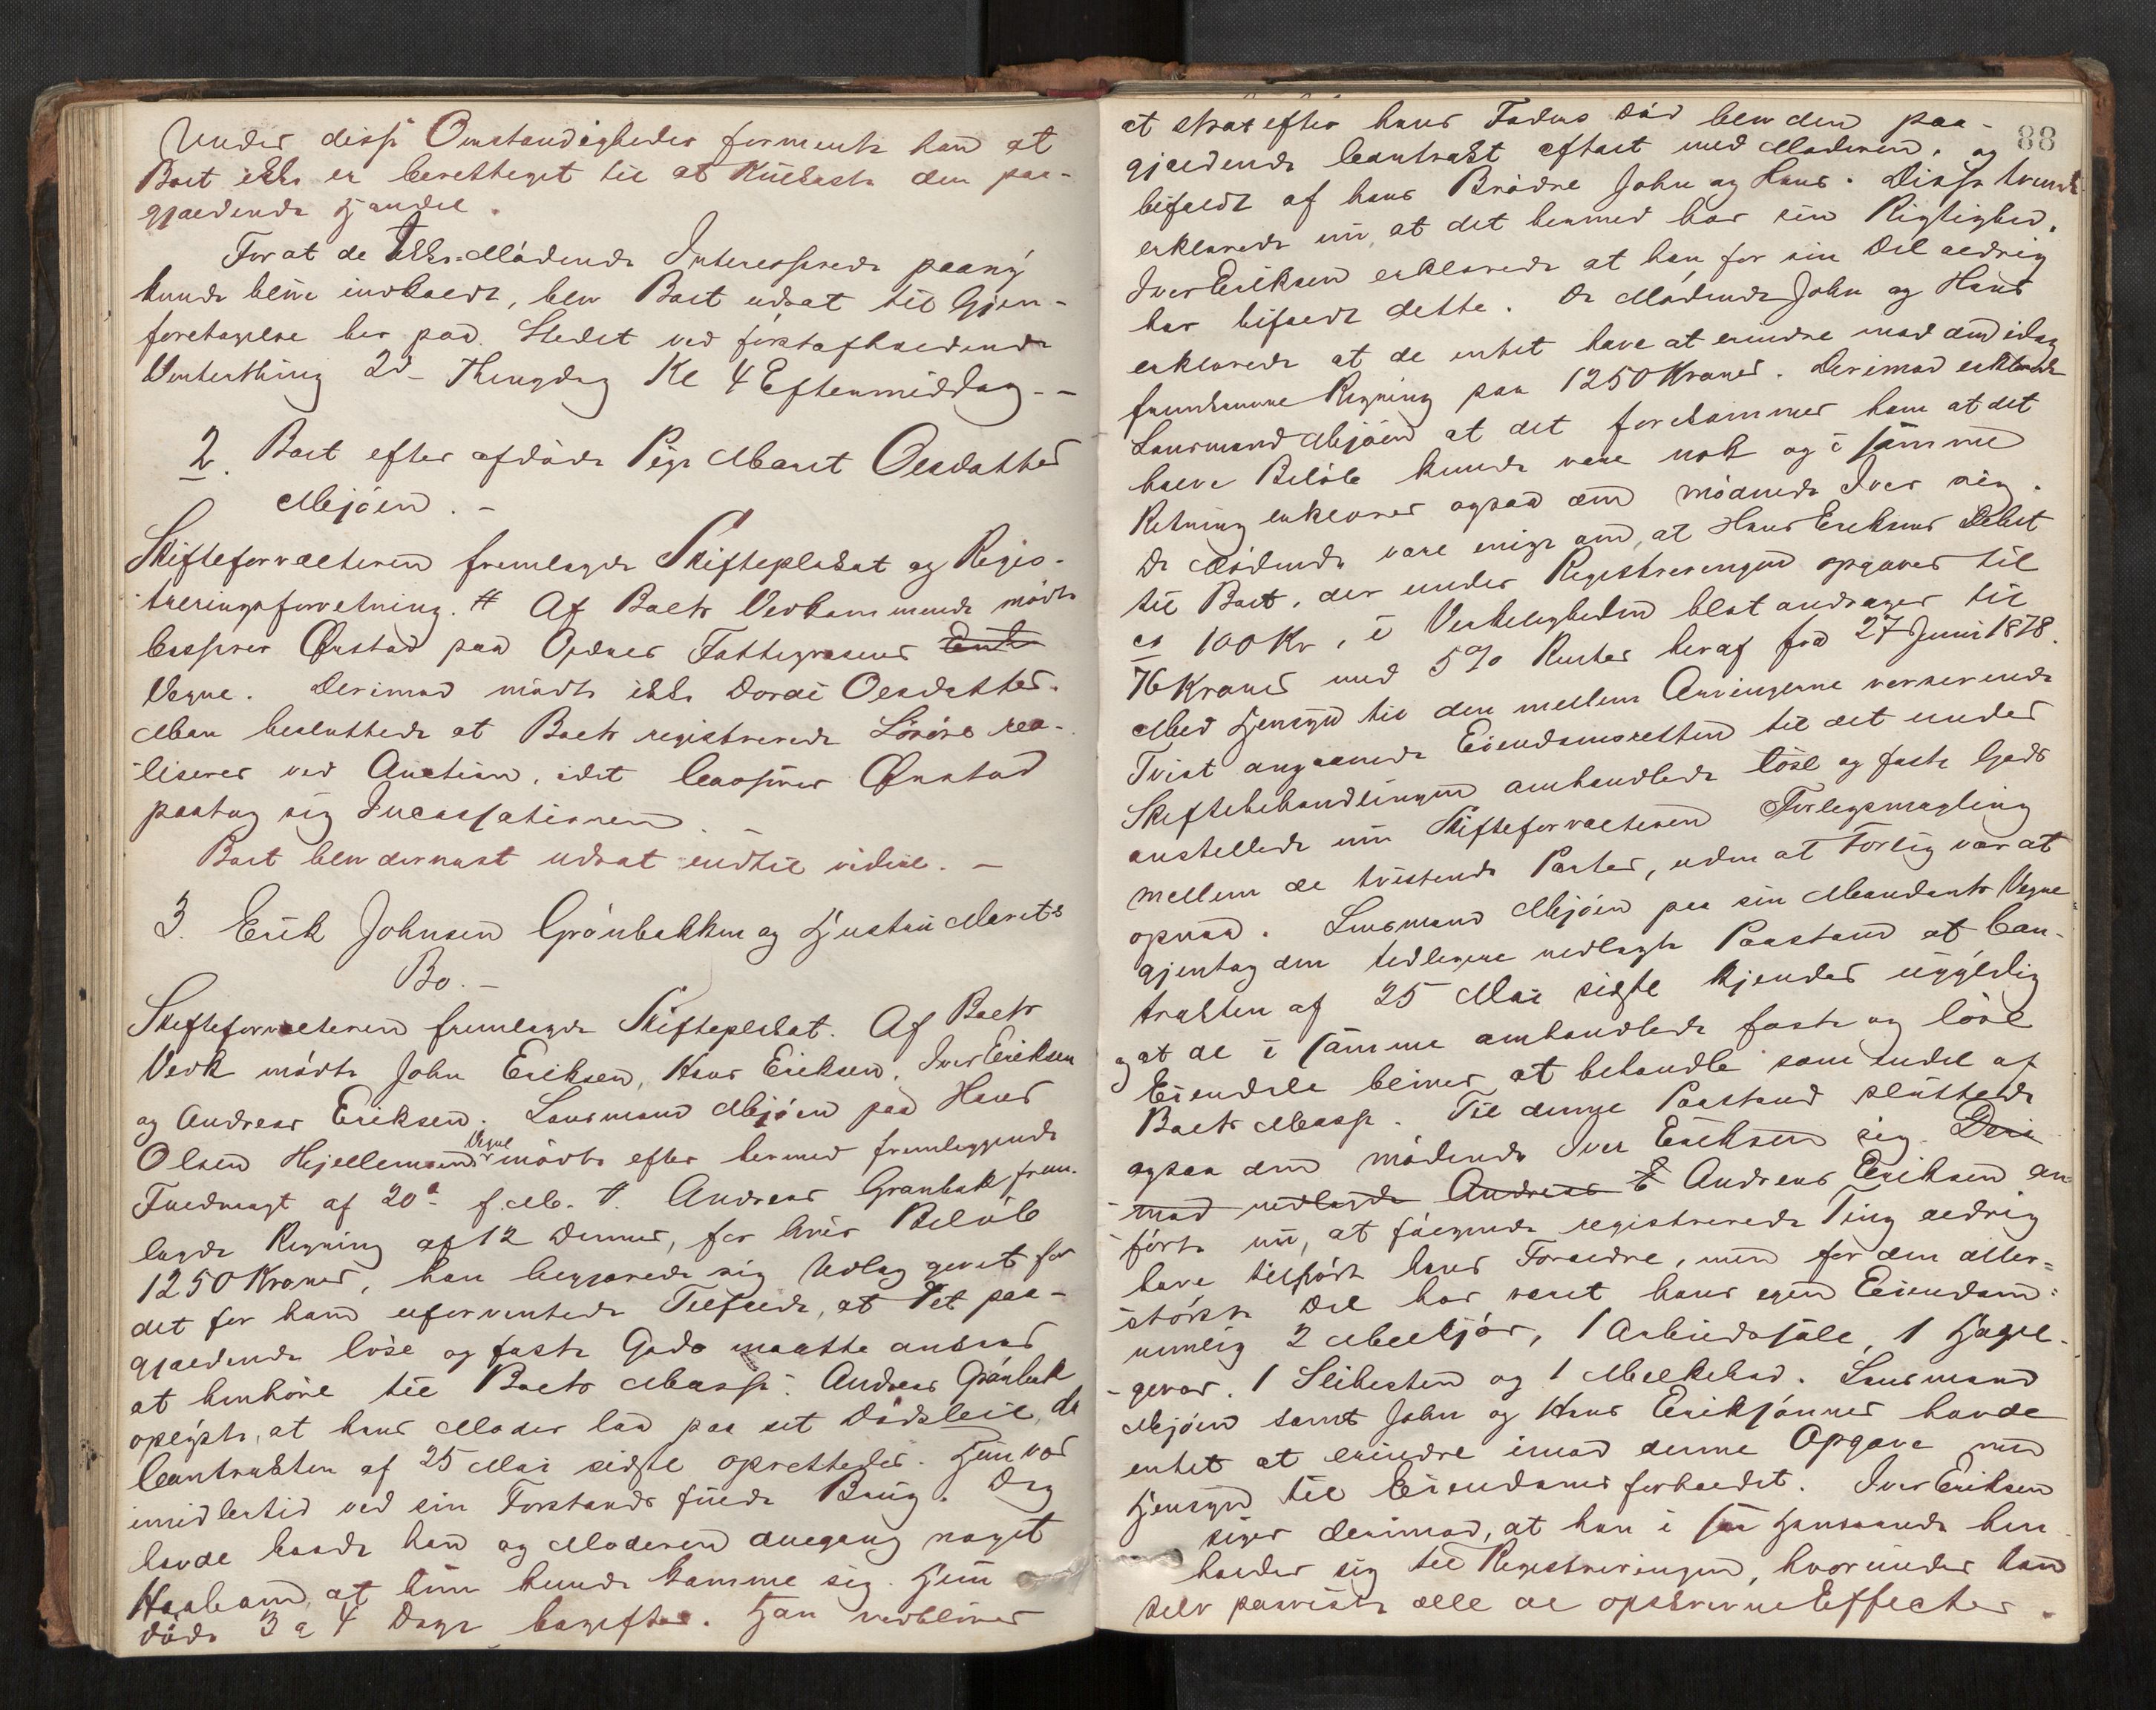 Under disse Omstændigheder formente han at
Boet ikke er berettiget til at kuldkaste den paa-
gjældende Handel.
For at de ikke-Mødende Interesserede paany
kunde blive indkaldt, blev Boet udsat til Gjen-
foretagelse her paa Stedet ved førstafholdende
Vinterthing 2d Thingdag Kl 4 Eftermiddag. -
2. Boet efter afdøde Pige Marit Olsdatter
Mjøen. -
Skifteforvalteren fremlagde Skifteplakat og Regis-
treringsforretning. # Af Boets Vedkommende mødte
Casserer Ørstad paa Opdals Fattigvæsens
Vegne. Derimod mødte ikke Dordi Olsdatter.
Man besluttede at Boets registrerede Løsøre rea-
liseres ved Auction, idet Casserer Ørstad
paatog sig Incassationen.
Boet blev dernæst udsat indtil videre. -
3. Erik Johnsen Grønbakken og Hustru Marits
Bo. -
Skifteforvalteren fremlagde Skifteplakat. Af Boets
Vedk mødte John Eriksen, Hans Eriksen, Iver Eriksen
og Andreas Eriksen. Lensmand Mjøen paa Hans
Olsen Hjellemsens Vegne mødte efter hermed fremleggende
Fuldmagt af 20de f. M. #. Andreas Grønbak frem-
lagde Regning af 12 dennes, for hvis Beløb
1250 Kroner, han begjærede sig Udlag gevet for
det for ham uforventede Tilfælde, at det paa-
gjældende løse og faste Gods maatte ansees
at henhøre til Boets Masse. Andreas Grønbak
oplyste, at hans Moder laa paa sit Dødsleie, da
Contrakten af 25 Mai sidste oprettedes. Hun var
imidlertid ved sin Forstands fulde Brug. Dog
havde baade han og Moderen dengang noget
Haab om, at hun kunde komme sig. Hun
døde 3 a 4 Dage bagefter. Han vedbliver
88
at strax efter hans Faders Død blev den paa-
gjældende Contrakt aftalt med Moderen, og
bifaldt af hans Brødre John og Hans. Disse tvende
erklærede nu, at det hermed har sin Rigtighed.
Iver Eriksen erklærede at han for sin Del aldrig
har bifaldt dette. De Mødende John og Hans
erklærede at de intet have at erindre mod den idag
fremkomne Regning paa 1250 Kroner. Derimod erklærede
Lensmand Mjøen at det forekommer ham at det
halve Beløb kunde være nok og i samme
Retning erklærer ogsaa den mødende Iver sig.
De Mødende vare enige om, at Hans Eriksens Debet
til Boet, der under Registreringen opgaves til
ca 100 Kr, i Virkeligheden blot andrager til
76 Kroner med 5 % Renter heraf fra 27 Juni 1878.
Med Hensyn til den mellem Arvingerne verserende
Tvist angaaende Eiendomsretten til det under
Skiftebehandlingen omhandlede løse og faste Gods
anstillede nu Skifteforvalteren Forligsmægling
mellem de tvistende Parter, uden at Forlig var at
opnaa. Lensmand Mjøen paa sin Mandants Vegne
gjentog den tidligere nedlagte Paastand at Con-
trakten af 25 Mai sidste kjendes ugyldig
og at de i samme omhandlede faste og løse
Eiendele bliver at behandle som endel af
Boets Masse. Til denne Paastand sluttede
ogsaa den mødende Iver Eriksen sig. Deri
mod nedlagde Andreas Andreas Eriksen an-
førte nu, at følgende registrerede Ting aldrig
have tilhørt hans Forældre, men for den aller-
største Del har været hans egen Eiendom:
nemlig 2 Melkjør, 1 Arbeidssæle, 1 Hagel-
gevær, 1 Slibesten og 1 Melkekar. Lensmand
Mjøen samt John og Hans Eriksønner havde
intet at erindre imod denne Opgave med
Hensyn til Eiendomsforholdet. Iver Eriksen
siger derimod, at han i saa Henseende hen-
holder sig til Registreringen, hvorunder han
selv paaviste alle de opskrevne Effecter.